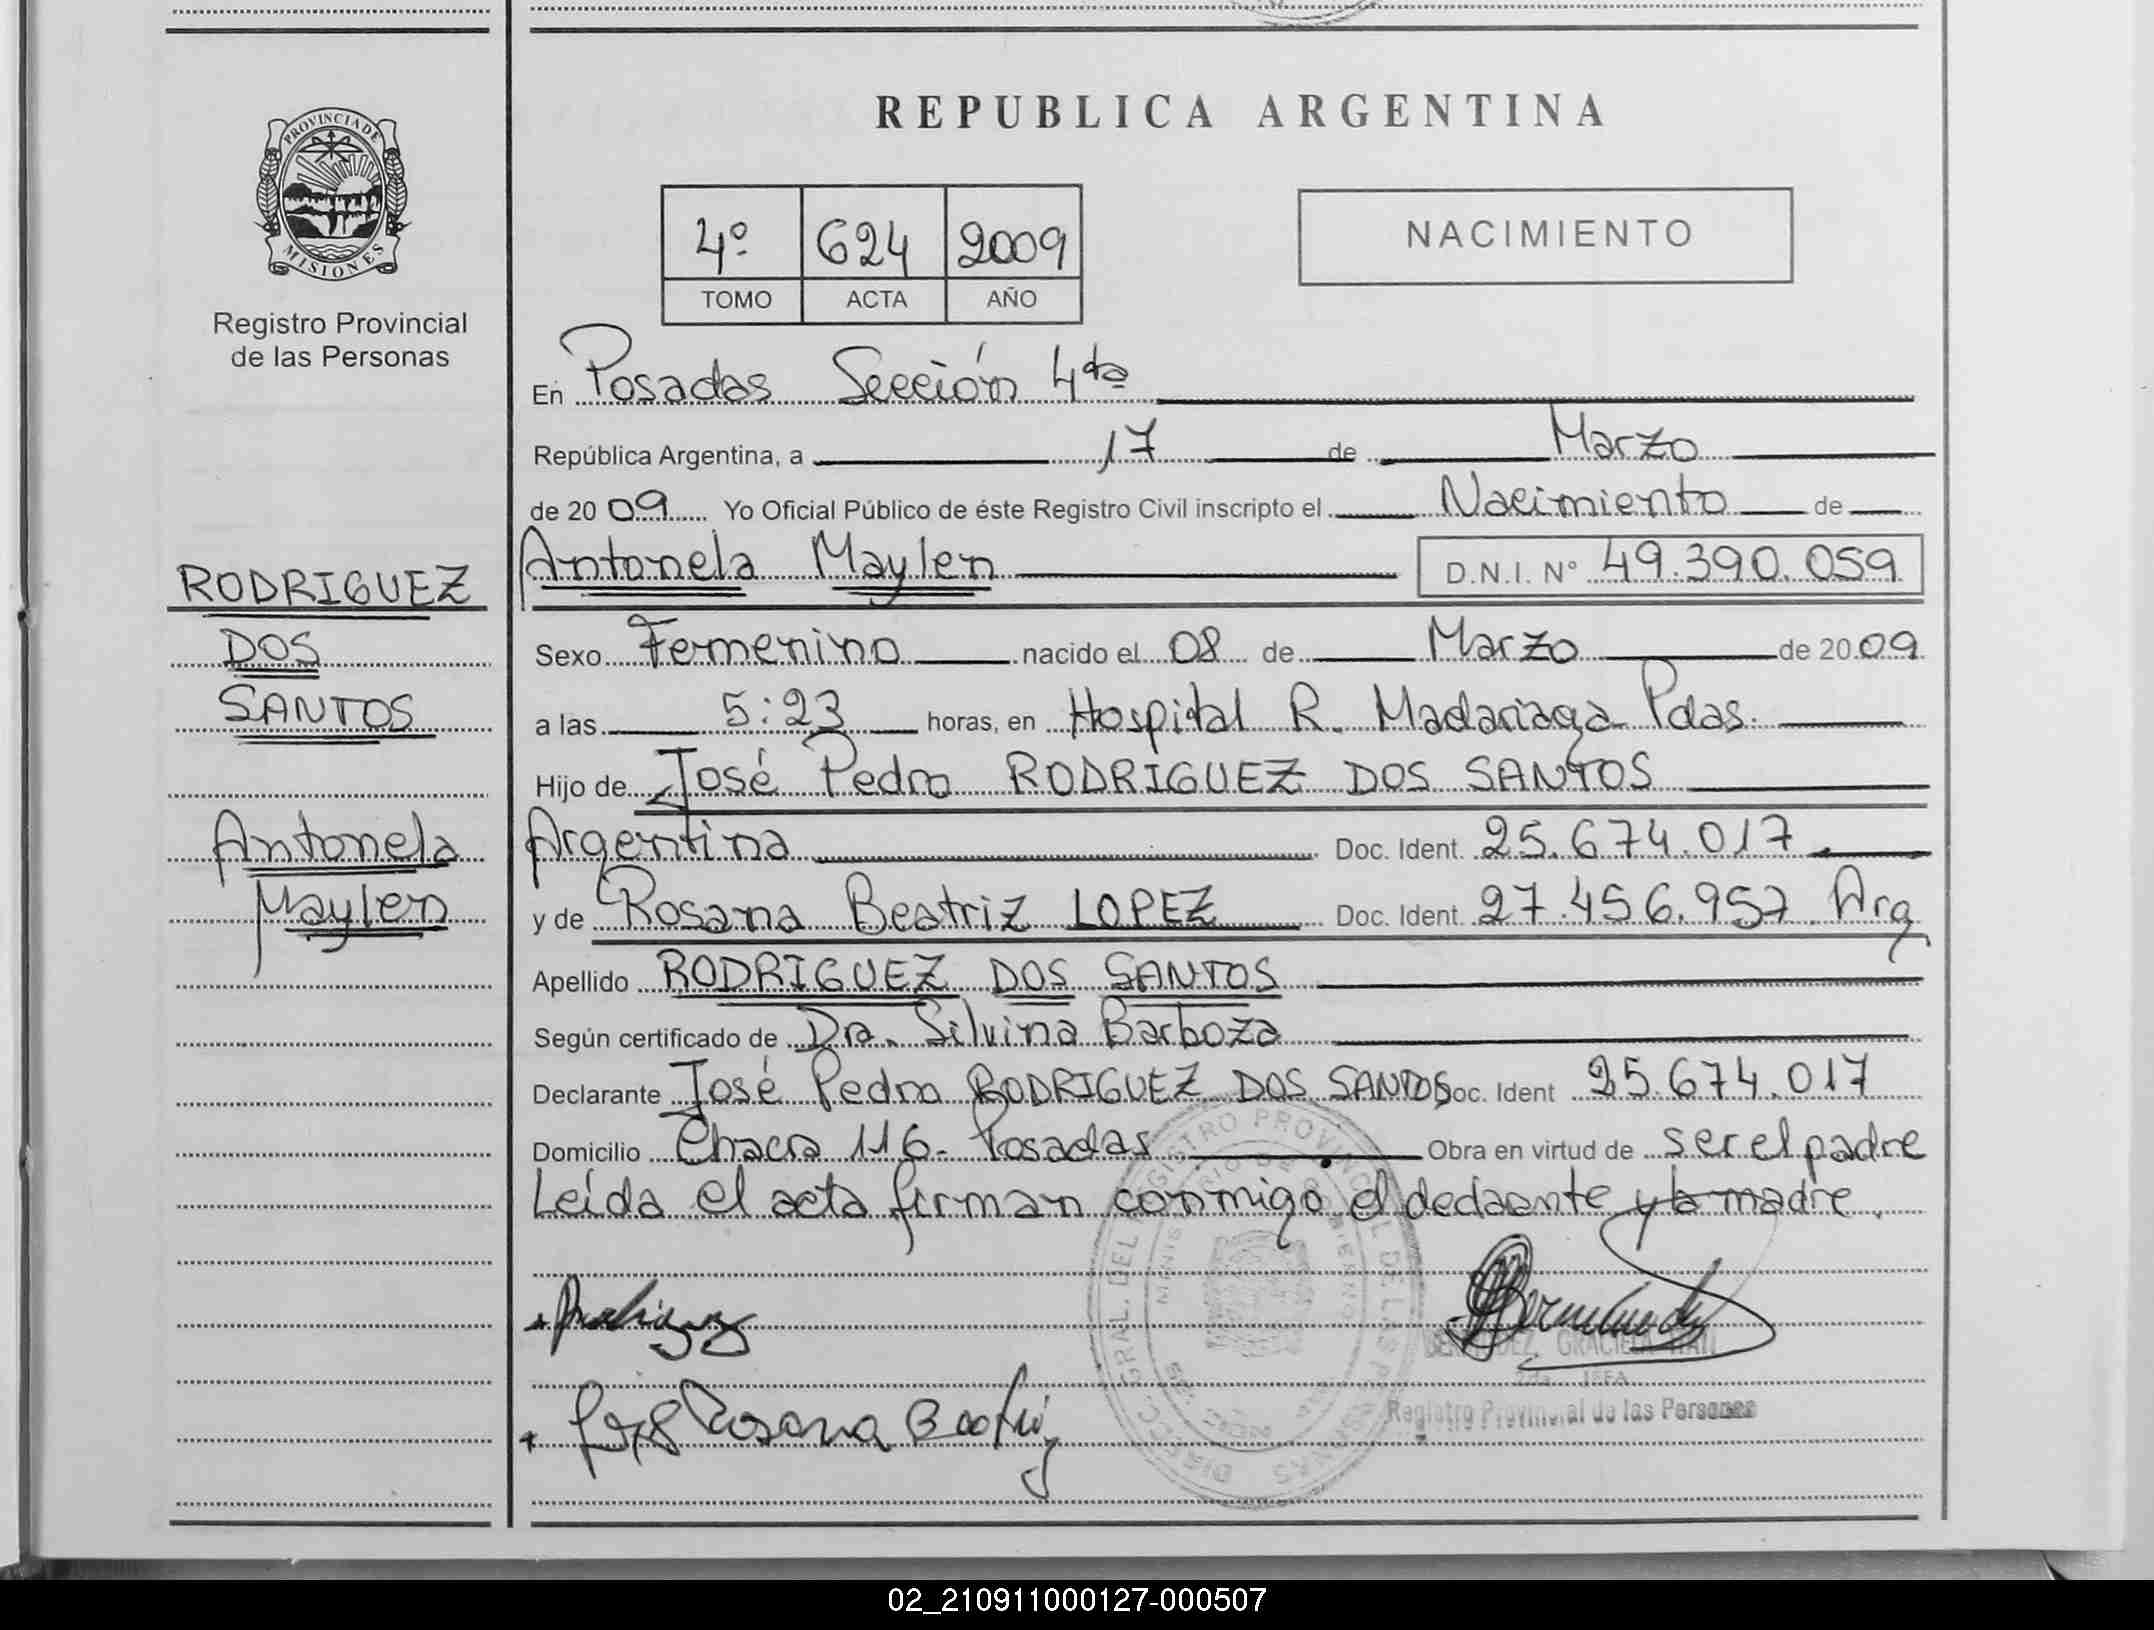 PROVINCIA DE
MISIONES
Registro Provincial
de las Personas
RODRIGUEZ
DOS
SANTOS
Antonela
Maylen
REPUBLICA ARGENTINA
4º 624 2009
TOMO ACTA AÑO
NACIMIENTO
En Posadas Sección 4ta
República Argentina, a 17 de Marzo
de 2009 Yo Oficial Público de éste Registro Civil inscripto el Nacimiento de
Antonela Maylen D.N.I. Nº 49.390.059
Sexo Femenino nacido el 08 de Marzo de 2009
a las 5:23 horas, en Hospital R. Madariaga Pdas.
Hijo de José Pedro RODRIGUEZ DOS SANTOS
Argentina Doc. Ident. 25.674.017
y de Rosana Beatriz LOPEZ Doc. Ident. 27.456.957 Arg
Apellido RODRIGUEZ DOS SANTOS
Según certificado de Dra. Silvina Barboza
Declarante José Pedro RODRIGUEZ DOS SANTOS Doc. Ident 25.674.017
Domicilio Chacra 116- Posadas Obra en virtud de ser el padre
Leída el acta firman conmigo el declarante y la madre.
Rosana Beatriz
GRACIELA
JEFA
Registro Provincial de las Personas
DIRECC. GRAL. DEL REGISTRO PROVINCIAL DE LAS PERSONAS
02_210911000127-000507